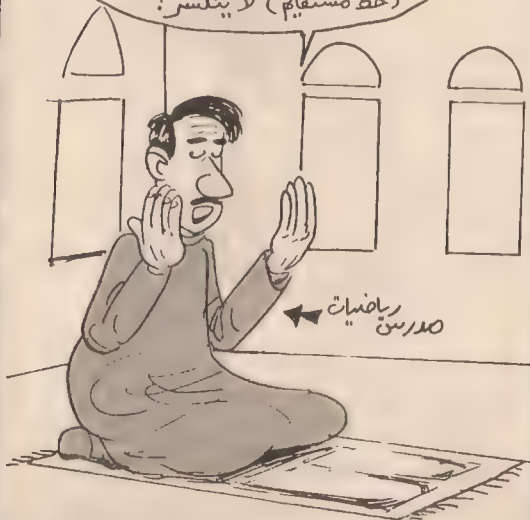 (خط مستقيم) لا ينكسر!
مدرس رياضيات